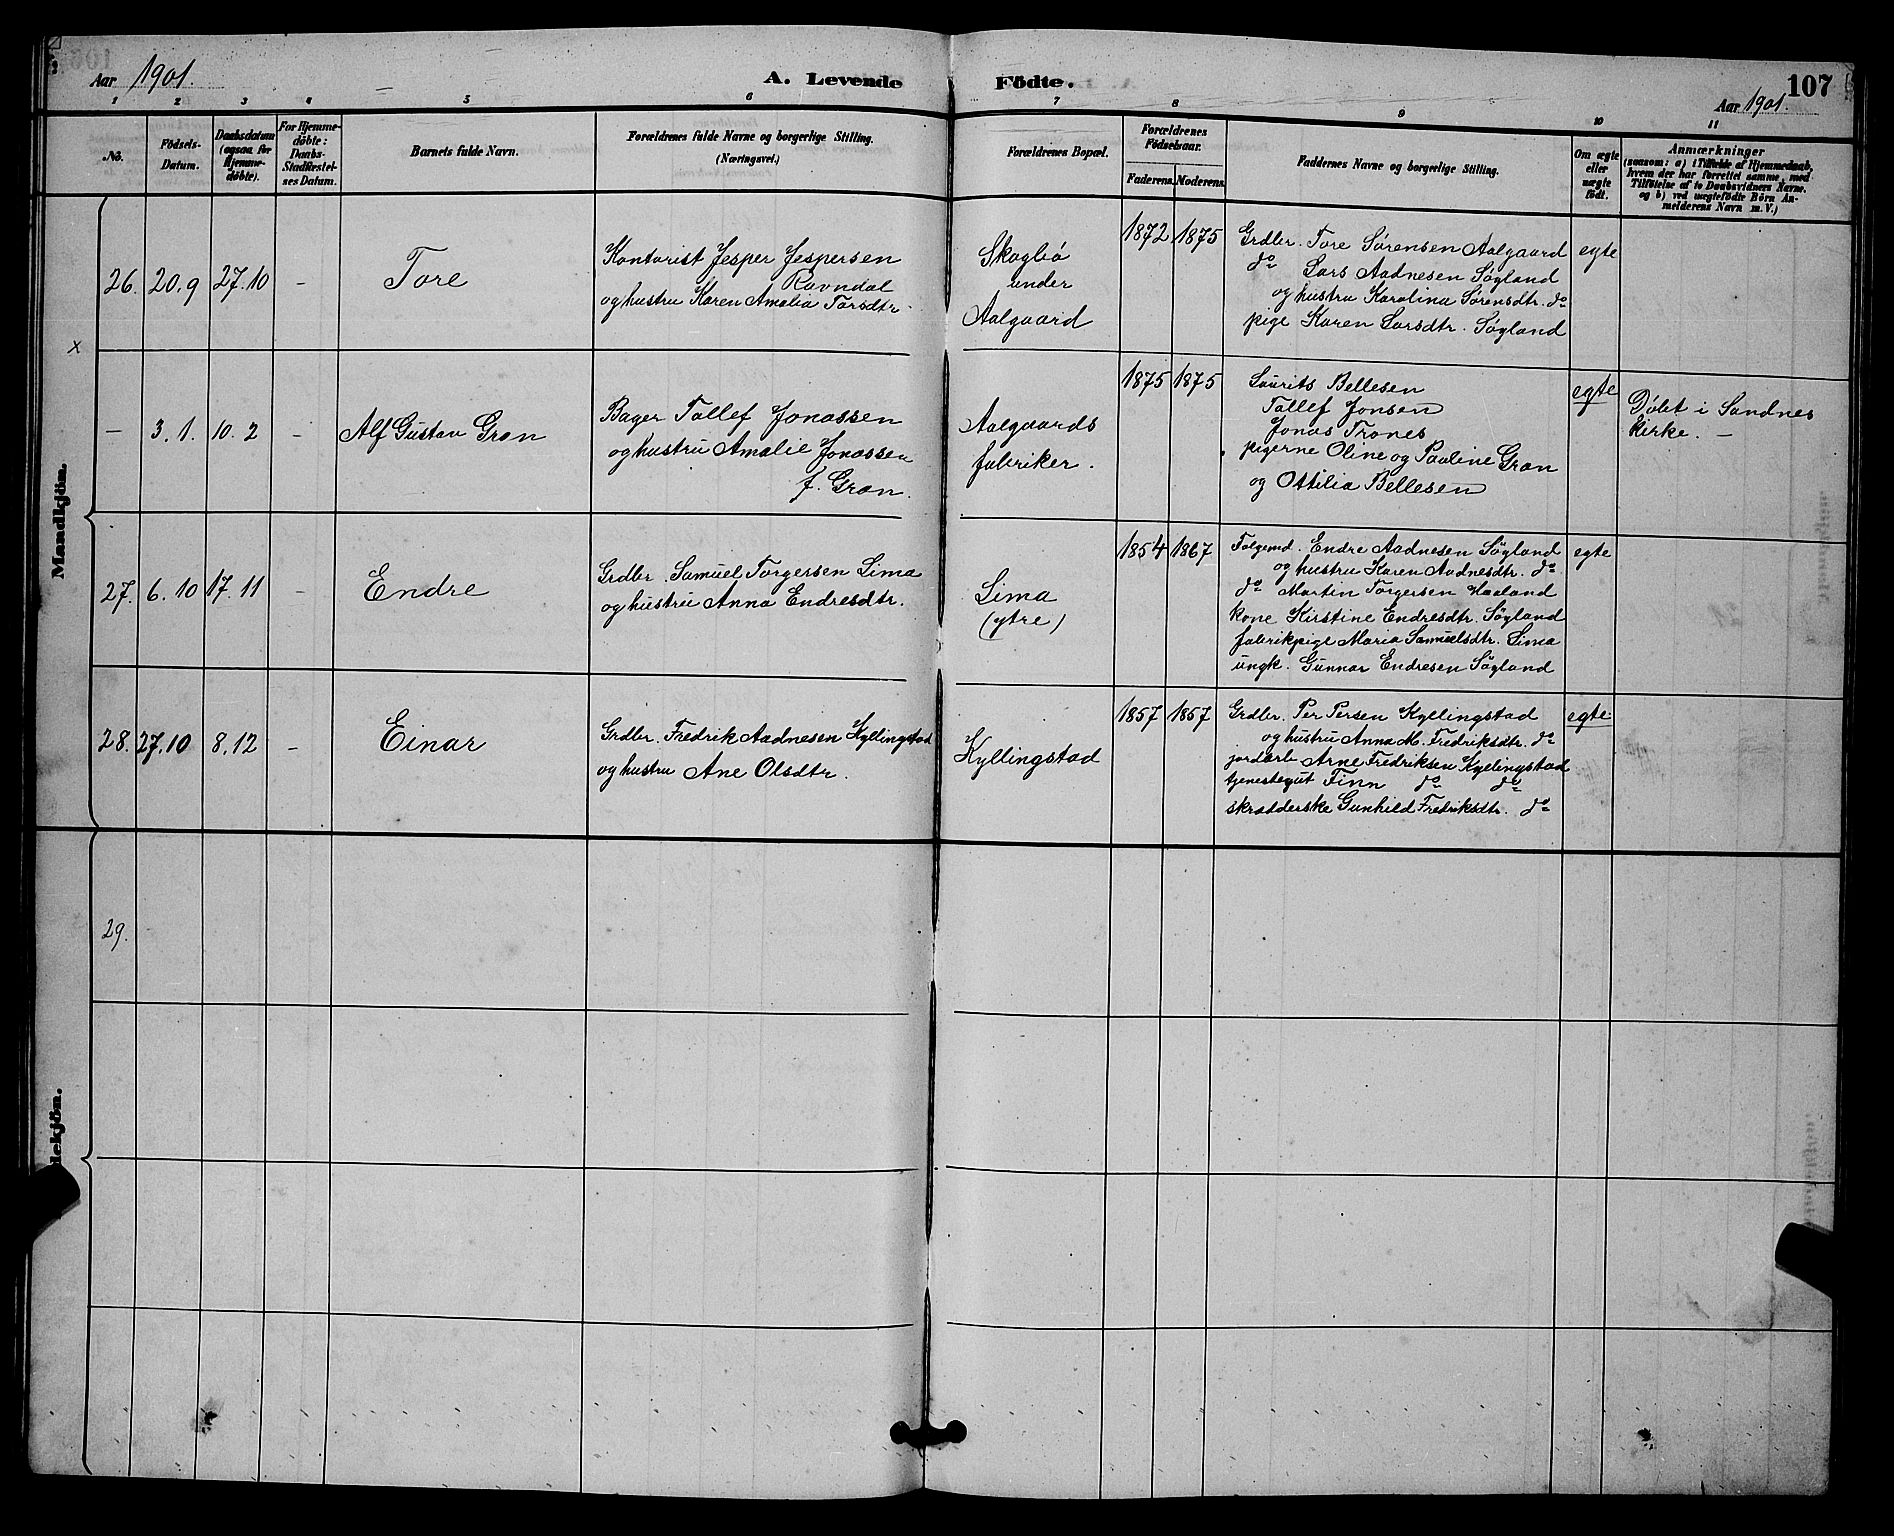 Aar 1901.
A. Levende Födte.
107
Aar 1901.
1 2 3 4 5 6 7 8 9 10 11
No.
Födsels-
Datum.
Daabsdatum
(ogsaa for
Hjemme-
døbte).
For Hjemme-
døbte:
Daabs-
Stadfæstel-
ses Datum.
Barnets fulde Navn.
Forældrenes fulde Navne og borgerlige Stilling.
(Næringsvei.)
Forældrenes Bopæl.
Forældrenes
Födselsaar.
Faderens. Moderens.
Faddernes Navne og borgerlige Stilling.
Om ægte
eller
uægte
födt.
Anmærkninger
(saasom: a) i Tilfælde af Hjemmedaab,
hvem der har forrettet samme, med
Tilføielse af to Daabsvidners Navne.
og b) ved uægtefödte Börn An-
melderens Navn m. V.)
Mandkjön.
26. 20.9 27.10 -
Tore
Kontorist Jesper Jespersen
Ravndal
og hustru Karen Amalia Torsdtr
Skoglió
under
Aalgaard
1872 1875
Grdbr. Tore Sørensen Aalgaard
do Lars Aadnesen Søyland
og hustru Karolina Sørensdtr. do
pige Karen Larsdtr. Søyland
egte
x
- 3.1. 10.2 -
Alf Gustav Gron
Bager Tollef Jonassen
og hustru Amalie Jonassen
f. Gron.
Aalgaards
fabriker.
1875 1875
Laurits Bellesen
Tollef Jonsen
Jonas Trones
pigerne Oline og Pauline Gron
og Ottilia Bellesen
egte
Døbt i Sandnes
kirke. -
27. 6.10 17.11 -
Endre
Grdbr. Samuel Torgersen Lima
og hustru Anna Endresdtr.
Lima
(ytre)
1854 1867
Folgemd. Endre Aadnesen Søyland
og hustru Karen Aadnesdtr. do
do Martin Torgersen Haeland
kone Kirstine Endresdtr. Søyland
fabrikpige Maria Samuelsdtr. Lima
ungk. Gunnar Endresen Søyland
egte
28. 27.10 8.12 -
Einar
Grdbr. Fredrik Aadnesen Kyllingstad
og hustru Ane Olsdtr.
Kyllingstad
1857 1857
Grdbr. Per Persen Kyllingstad
og hustru Anna M. Fredriksdtr. do
jordarb Arne Fredriksen Kyllingstad
tjenestegut Finn do do
skrædderske Gunhild Fredriksdtr. do
egte
29.